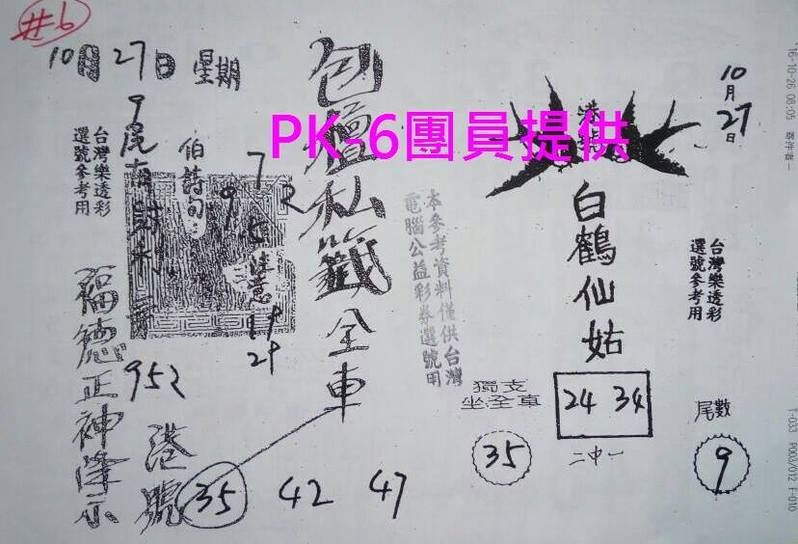 #6
10月27日 星期
台灣樂透彩
選號參考用
伯詩句
福德正神降示
952
港號
35 42 47
包壇私籤全車
PK-6團員提供
本參考資料僅供台灣
電腦公益彩券選號用
白鶴仙姑
獨支
坐全車
35
24 34
二中一
10月27日
台灣樂透彩
選號參考用
尾數
9
'16-10-26 08:05
T-033 P003/012 F-010